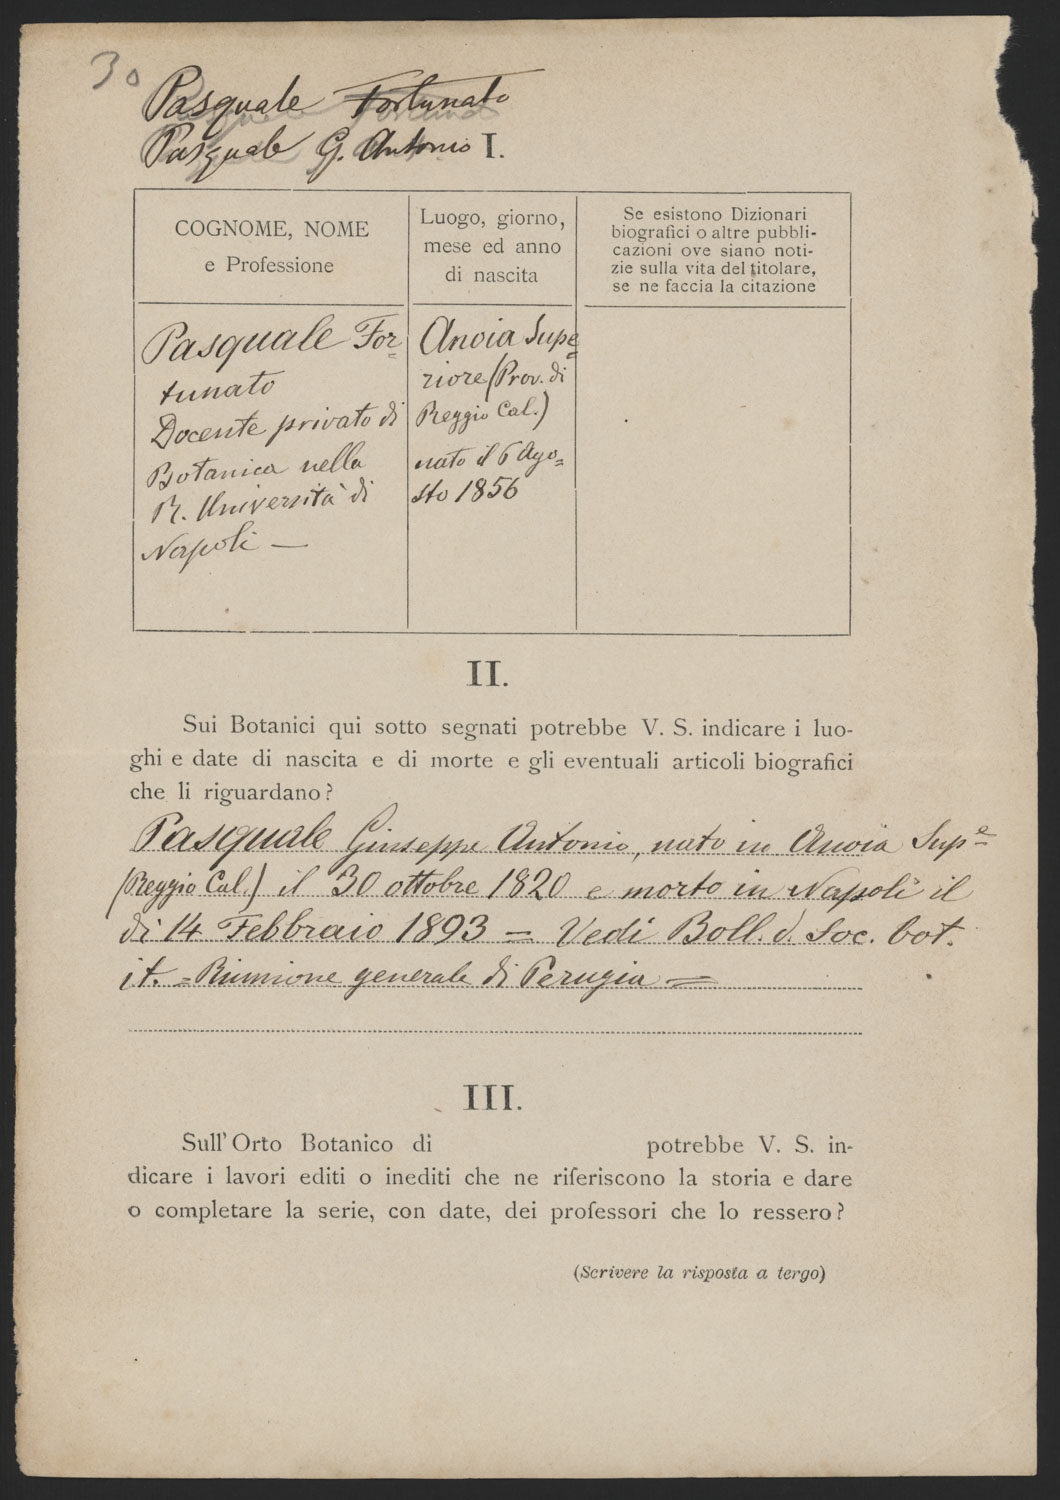 30
Pasquale Fortunato
Pasquale G. Antonio I.
COGNOME, NOME
e Professione
Luogo, giorno,
mese ed anno
di nascita
Se esistono Dizionari
biografici o altre pubbli-
cazioni ove siano noti-
zie sulla vita del titolare,
se ne faccia la citazione
Pasquale For=
tunato
Docente privato di
Botanica nella
R. Università di
Napoli —
Anoia Supe=
riore (Prov. di
Reggio Cal.)
nato il 6 Ago=
sto 1856
II.
Sui Botanici qui sotto segnati potrebbe V. S. indicare i luo-
ghi e date di nascita e di morte e gli eventuali articoli biografici
che li riguardano?
Pasquale Giuseppe Antonio, nato in Anoia Sup.e
(Reggio Cal.) il 30 ottobre 1820 e morto in Napoli il
dì 14 Febbraio 1893 = Vedi Boll. d. Soc. bot.
it. = Riunione generale di Perugia =
III.
Sull'Orto Botanico di potrebbe V. S. in-
dicare i lavori editi o inediti che ne riferiscono la storia e dare
o completare la serie, con date, dei professori che lo ressero?
(Scrivere la risposta a tergo)